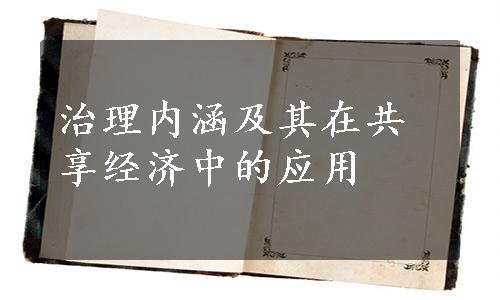 治理内涵及其在共
享经济中的应用